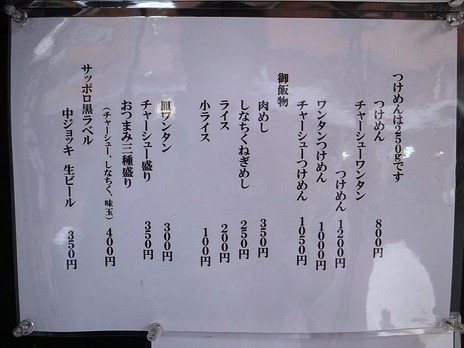 つけめんは250gです
つけめん 800円
チャーシューワンタン
つけめん 1200円
ワンタンつけめん 1000円
チャーシューつけめん 1050円
御飯物
肉めし 350円
しなちくねぎめし 250円
ライス 200円
小ライス 100円
皿ワンタン 300円
チャーシュー盛り 350円
おつまみ三種盛り 400円
（チャーシュー、しなちく、味玉）
サッポロ黒ラベル
中ジョッキ 生ビール 350円